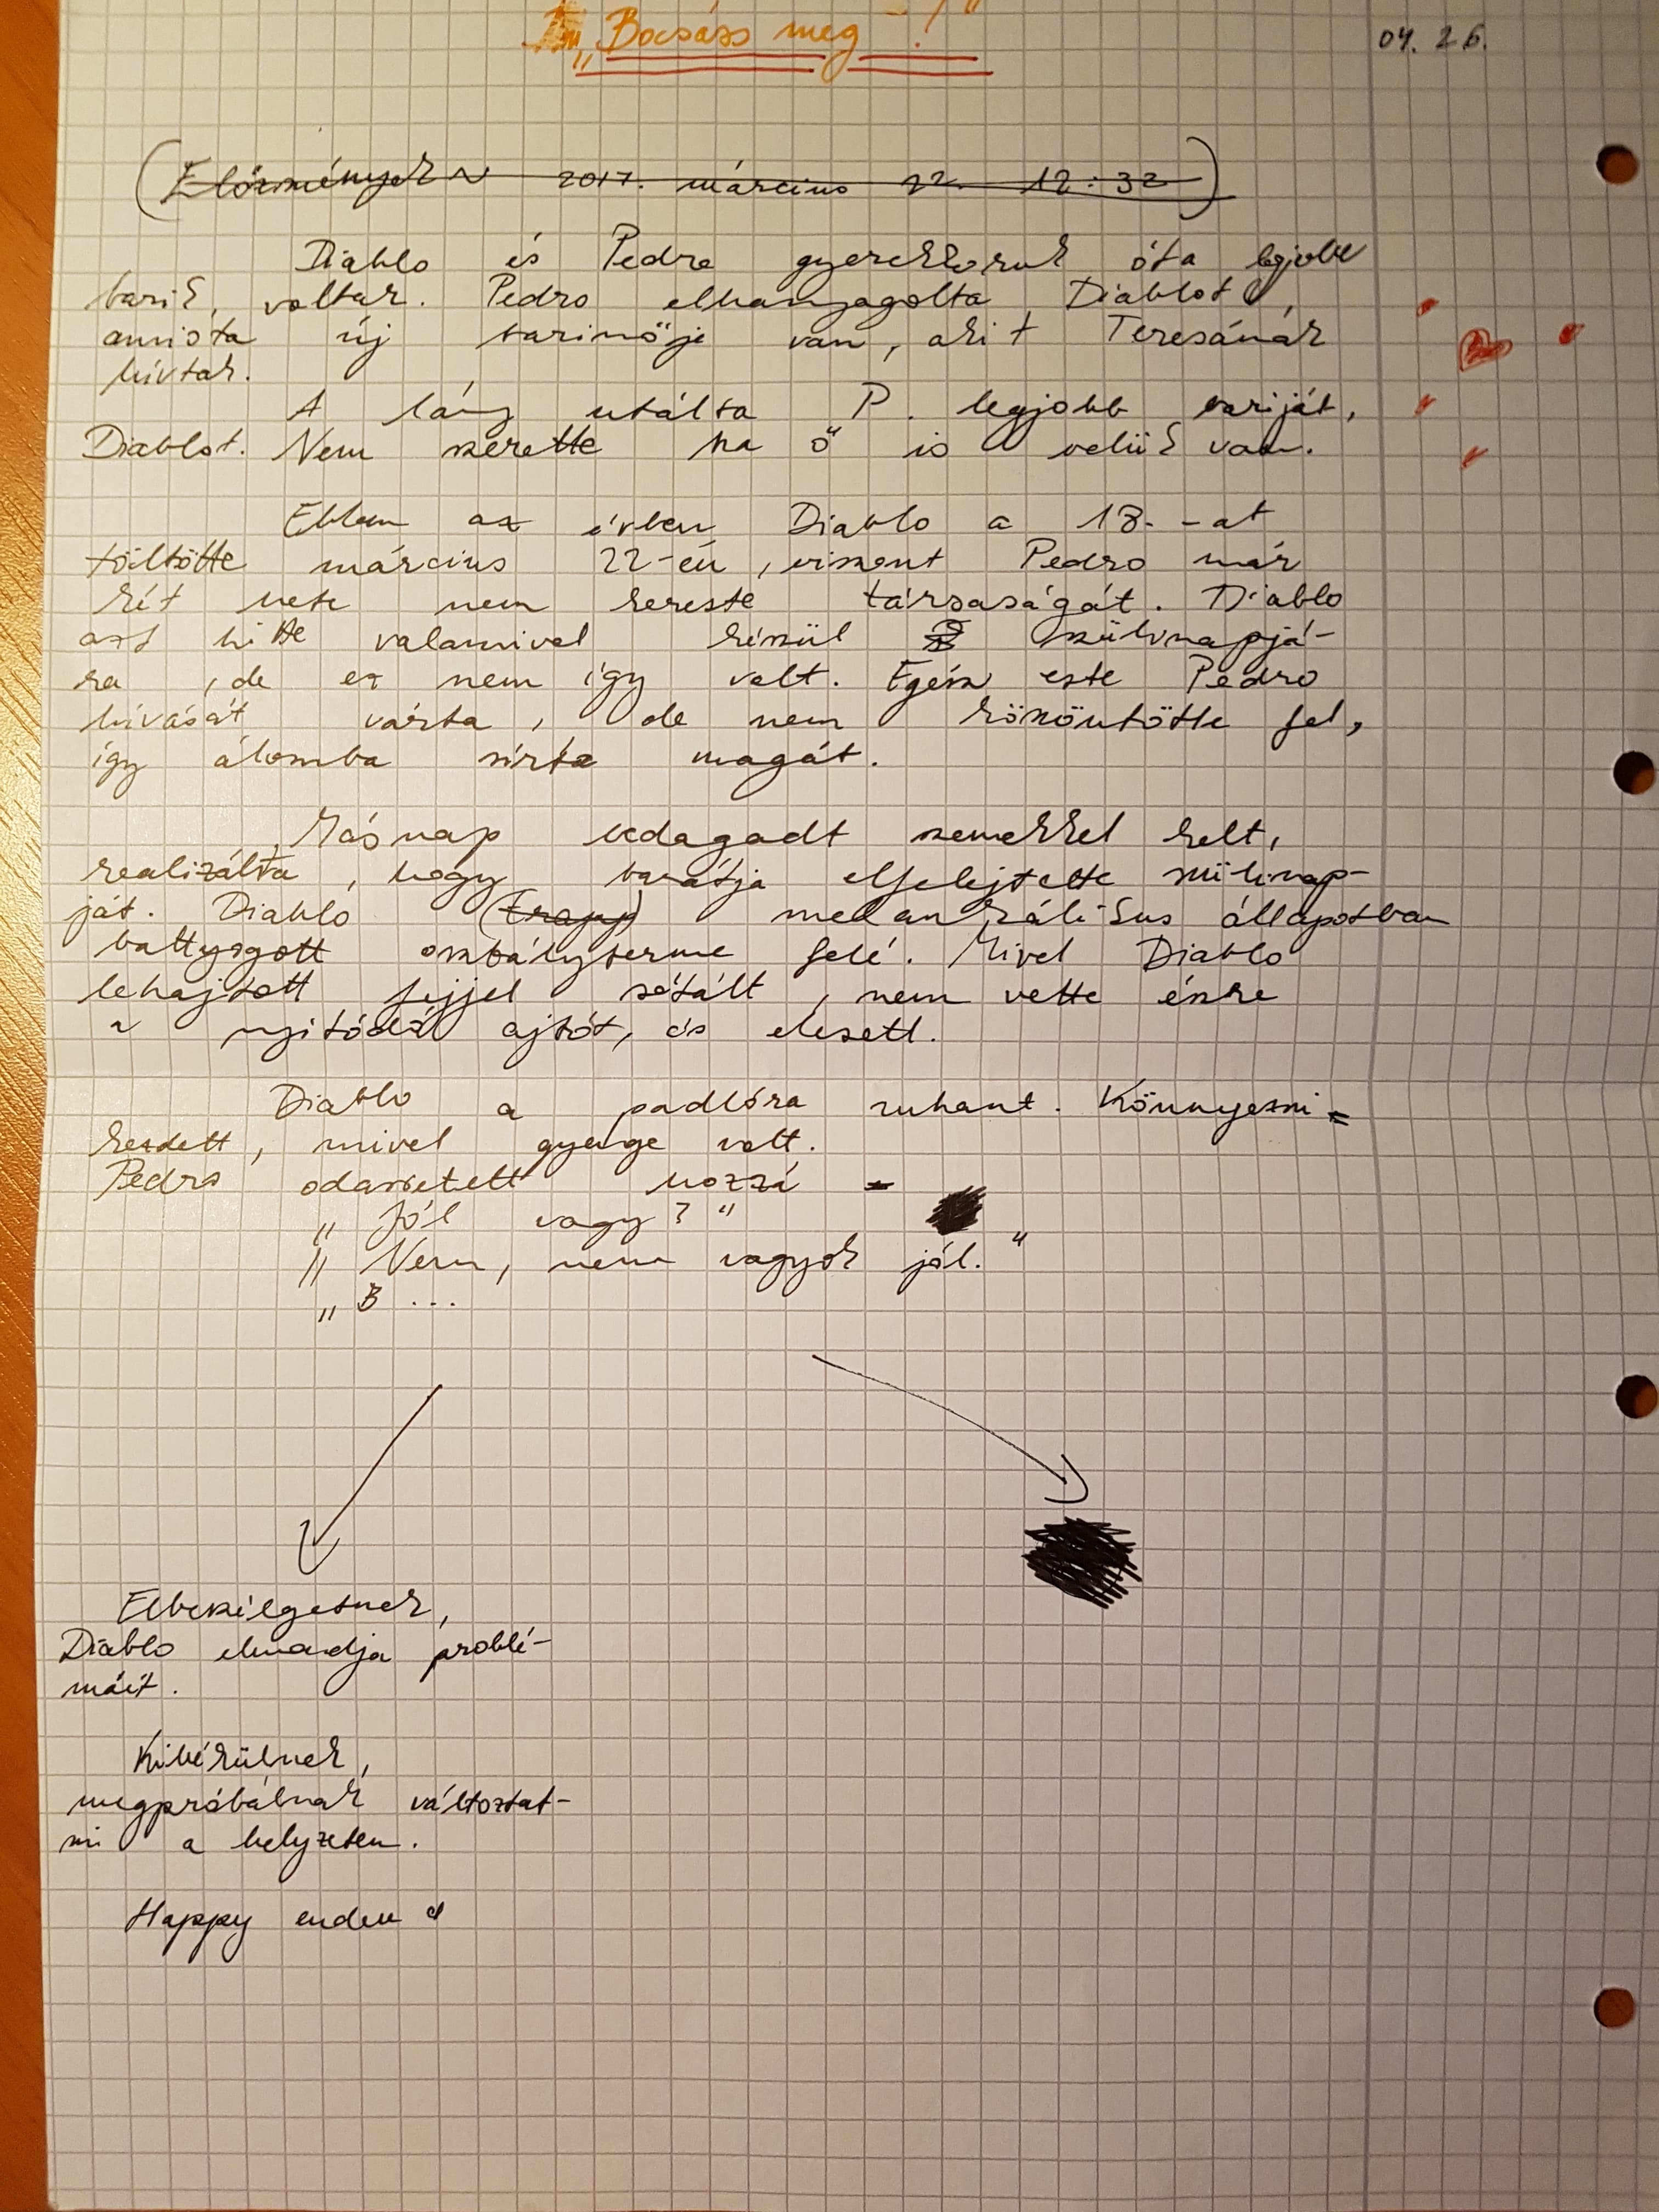 „Bocsáss meg !"
04. 26.
(Előzmények ~ 2017. március 22. 12:32)
Diablo és Pedro gyerekkoruk óta legjobb
barik voltak. Pedro elhanyagolta Diablot,
amióta új barinője van, akit Teresának
hívtak.
A lány utálta P. legjobb bariját,
Diablot. Nem szerette ha ő is velük van.
Ebben az évben Diablo a 18.-at
töltötte március 22-én, viszont Pedro már
két hete nem kereste társaságát. Diablo
azt hitte valamivel készül szülinapjá-
ra, de ez nem így volt. Egész este Pedro
hívását várta, de nem köszöntötte fel,
így álomba sírta magát.
Másnap bedagadt szemekkel kelt,
realizálta, hogy barátja elfelejtette szülinap-
ját. Diablo melankólikus állapotban
battyogott osztályterme felé. Mivel Diablo
lehajtott fejjel sétált, nem vette észre
a nyitódó ajtót, és elesett.
Diablo a padlóra zuhant. Könnyezni
kezdett, mivel gyenge volt.
Pedro odasietett hozzá
„Jól vagy?"
„Nem, nem vagyok jól."
„B ...
Elbeszélgetnek,
Diablo elmondja problé-
máit.
Kibékülnek,
megpróbálnak változtat-
ni a helyzeten.
Happy enden